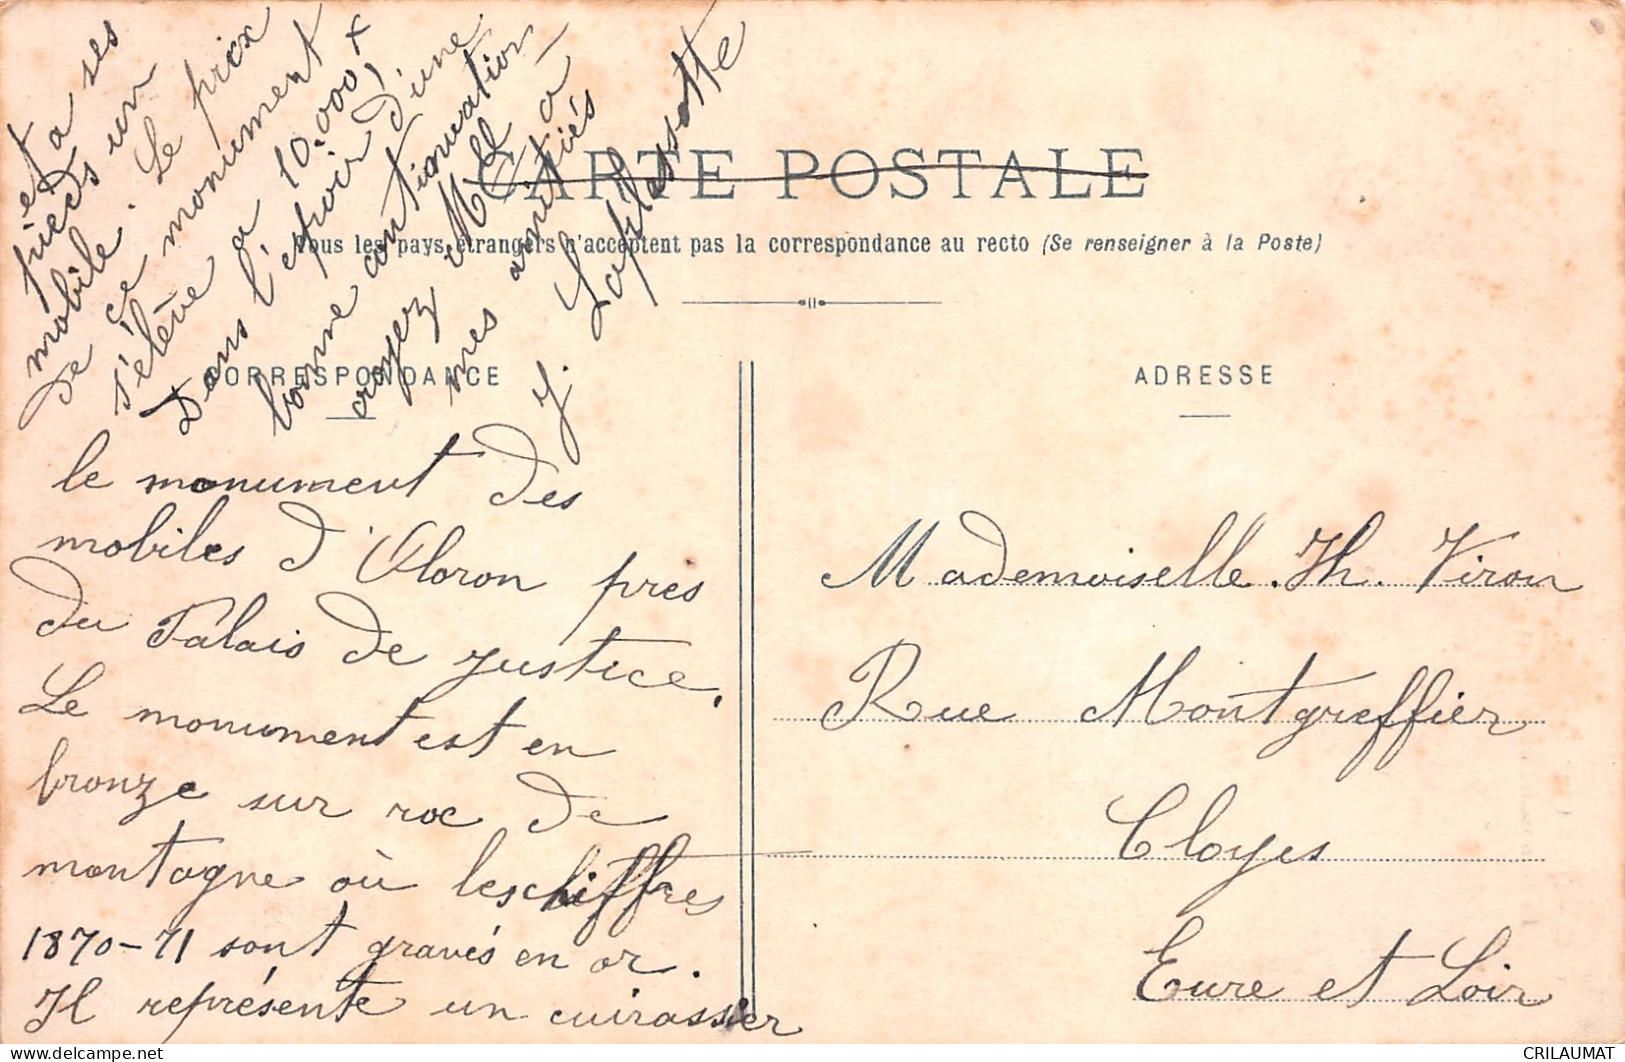 CARTE POSTALE
Tous les pays étrangers n'acceptent pas la correspondance au recto (Se renseigner à la Poste)
CORRESPONDANCE
le monument des
mobiles d'Oloron près
du Palais de justice.
Le monument est en
bronze sur roc de
montagne où les chiffres
1870-71 sont gravés en or.
Il représente un cuirassier
et a ses
pieds un
mobile. Le prix
de ce monument
s'élève a 10.000 +
Dans l'espoir d'une
bonne continuation
croyez Mlle a
mes amitiés
J. Lafilessotte
ADRESSE
Mademoiselle. Th. Viron
Rue Montgreffier
Cloyes
Eure et Loir
CRILAUMAT